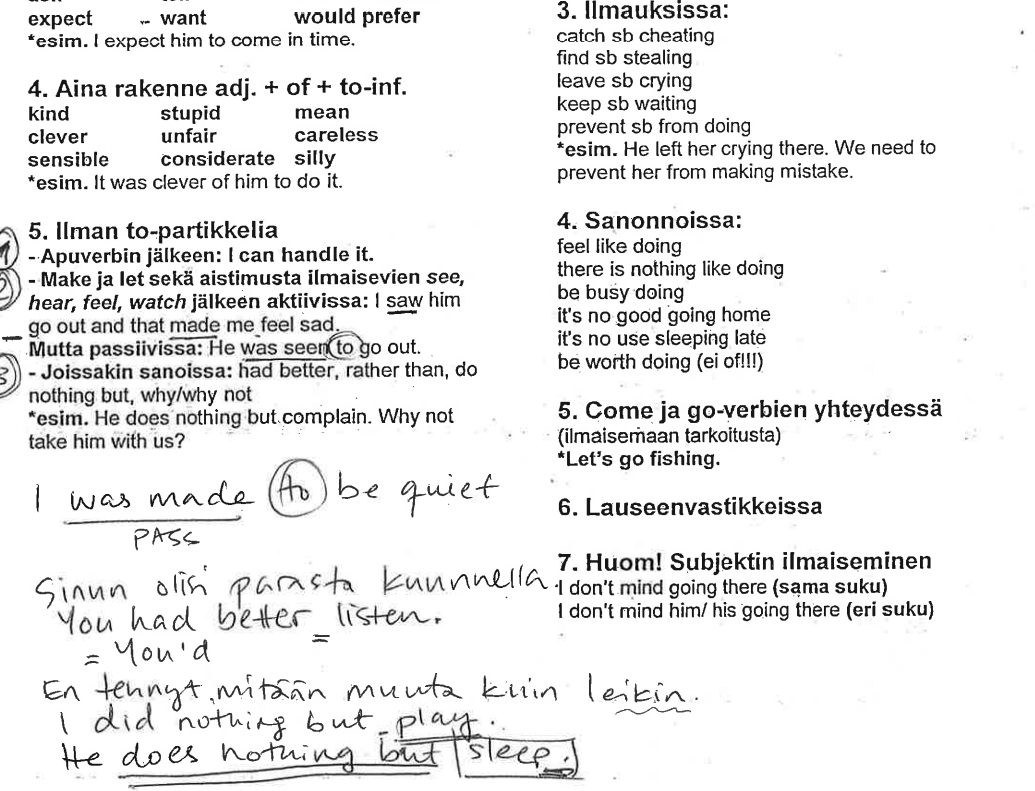 expect want would prefer
*esim. I expect him to come in time.
4. Aina rakenne adj. + of + to-inf.
kind stupid mean
clever unfair careless
sensible considerate silly
*esim. It was clever of him to do it.
5. Ilman to-partikkelia
1 - Apuverbin jälkeen: I can handle it.
2 - Make ja let sekä aistimusta ilmaisevien see,
hear, feel, watch jälkeen aktiivissa: I saw him
go out and that made me feel sad.
Mutta passiivissa: He was seen to go out.
3 - Joissakin sanoissa: had better, rather than, do
nothing but, why/why not
*esim. He does nothing but complain. Why not
take him with us?
I was made to be quiet
PASS
Sinun olisi parasta kuunnella.
You had better listen.
= You'd
En tehnyt mitään muuta kuin leikin.
I did nothing but play.
He does nothing but sleep.
3. Ilmauksissa:
catch sb cheating
find sb stealing
leave sb crying
keep sb waiting
prevent sb from doing
*esim. He left her crying there. We need to
prevent her from making mistake.
4. Sanonnoissa:
feel like doing
there is nothing like doing
be busy doing
it's no good going home
it's no use sleeping late
be worth doing (ei of!!!)
5. Come ja go-verbien yhteydessä
(ilmaisemaan tarkoitusta)
*Let's go fishing.
6. Lauseenvastikkeissa
7. Huom! Subjektin ilmaiseminen
I don't mind going there (sama suku)
I don't mind him/ his going there (eri suku)